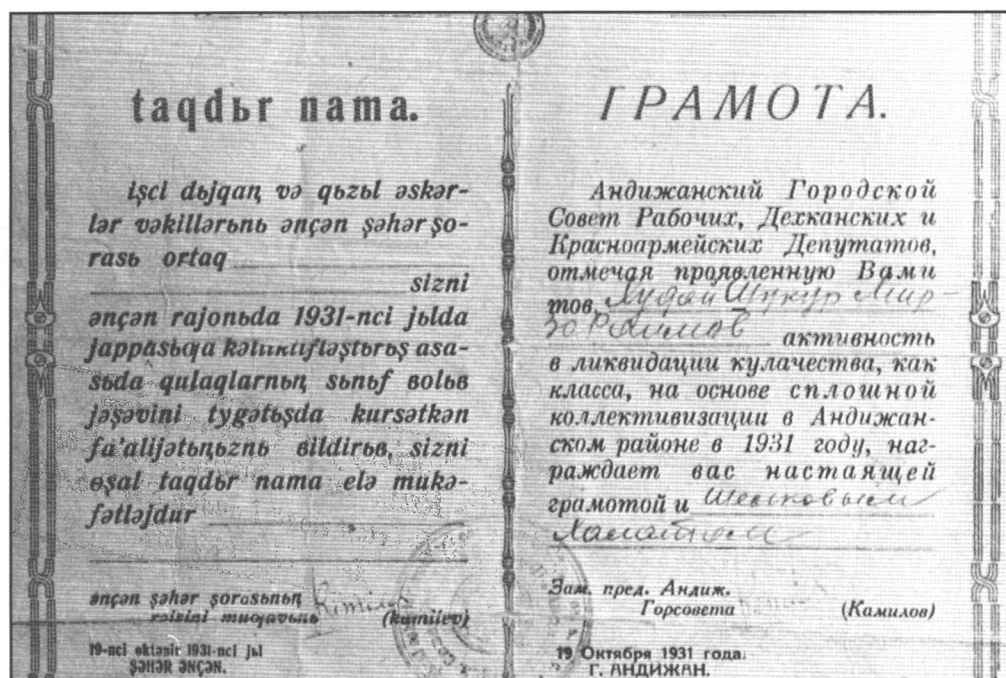 taqdьr nama.
işci dьjqaꞑ və qьzьl əskər-
lər vəkillərьnь ənçən şəhər şo-
rasь ortaq
sizni
ənçən rajonьda 1931-nci jьlda
jappasьƣa asa-
sьda qulaqlarnьꞑ sьnьf ʙolьʙ
jəşəvini tygətьşda kursətkən
fa'alijətьꞑьznь ʙildirьʙ, sizni
ɵşal taqdьr nama elə mukə-
fətləjdur
ənçən şəhər şorasьnьꞑ
(kamilev)
19-nci oktəʙir 1931-nci jьl
ŞƏHƏR ƏNÇƏN.
ГРАМОТА.
Андижанский Городской
Совет Рабочих, Дехканских и
Красноармейских Депутатов,
отмечая проявленную Вами
тов. Худой Шукур Мир-
за Рахимов активность
в ликвидации кулачества, как
класса, на основе сплошной
коллективизации в Андижан-
ском районе в 1931 году, наг-
раждает вас настаящей
грамотой и Шелковым
Халатом
Зам. пред. Андиж.
Горсовета (Камилов)
19 Октября 1931 года.
Г. АНДИЖАН.